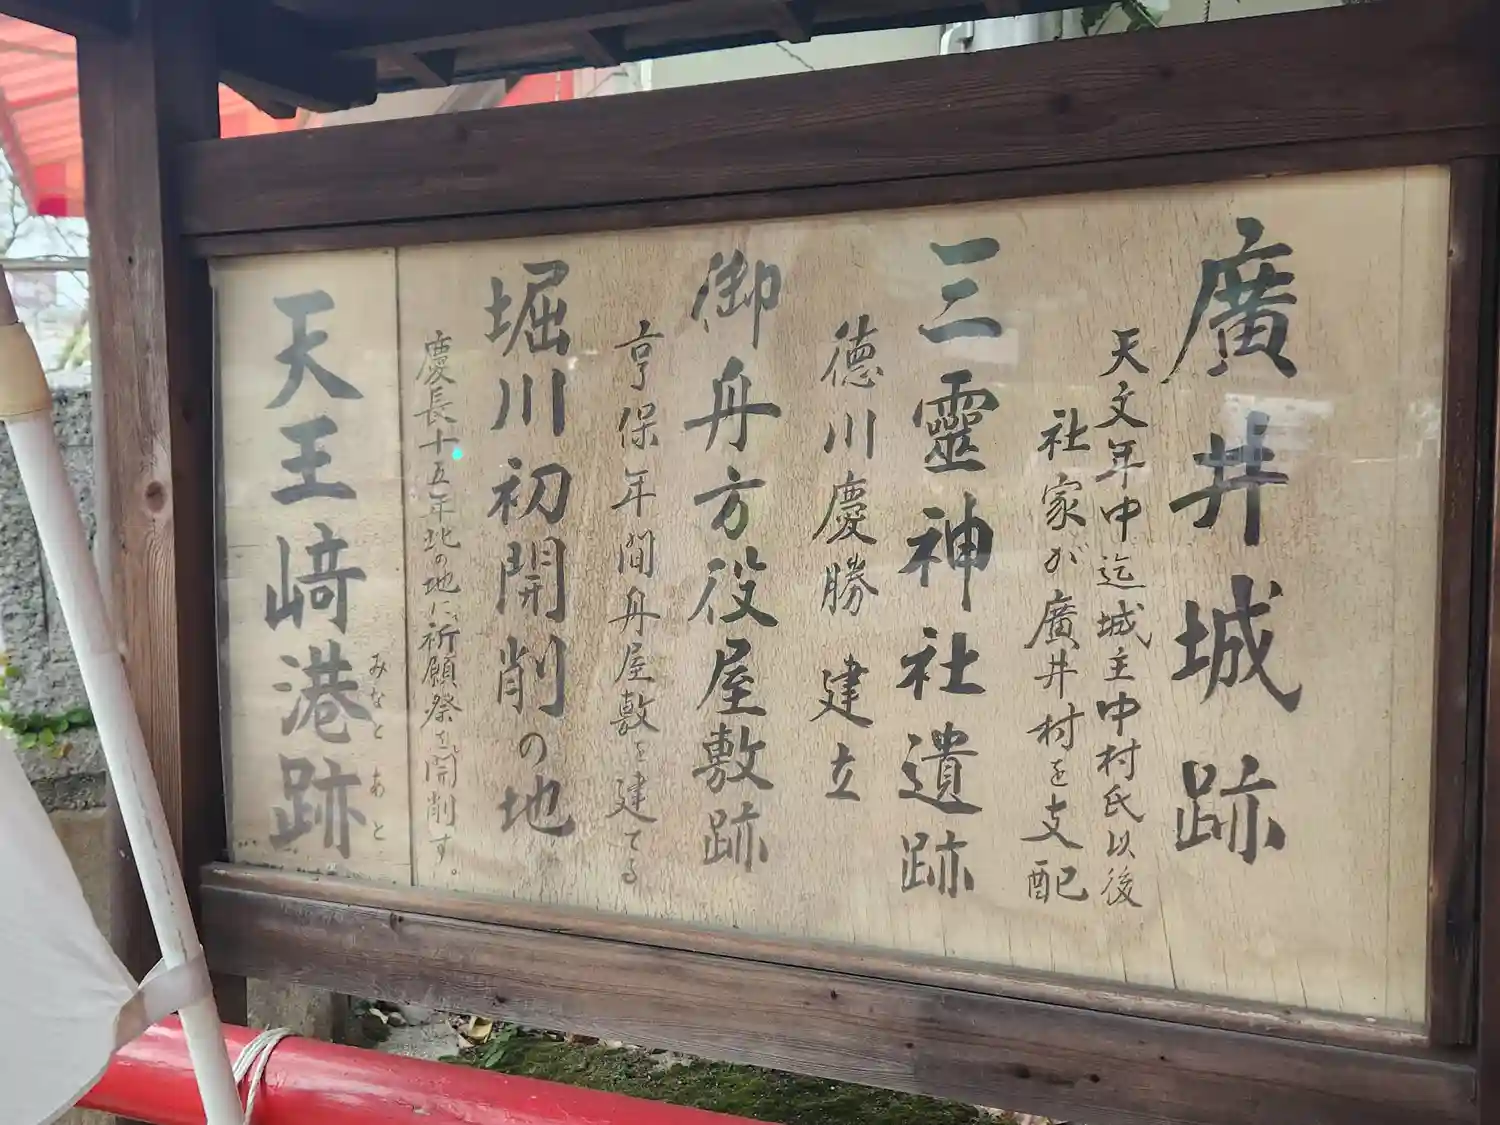 廣井城跡
天文年中迄城主中村氏以後
社家が廣井村を支配
三靈神社遺跡
徳川慶勝 建立
御舟方役屋敷跡
亨保年間舟屋敷を建てる
堀川初開削の地
慶長十五年此の地に祈願祭を開削す。
天王﨑港跡
みなと あと